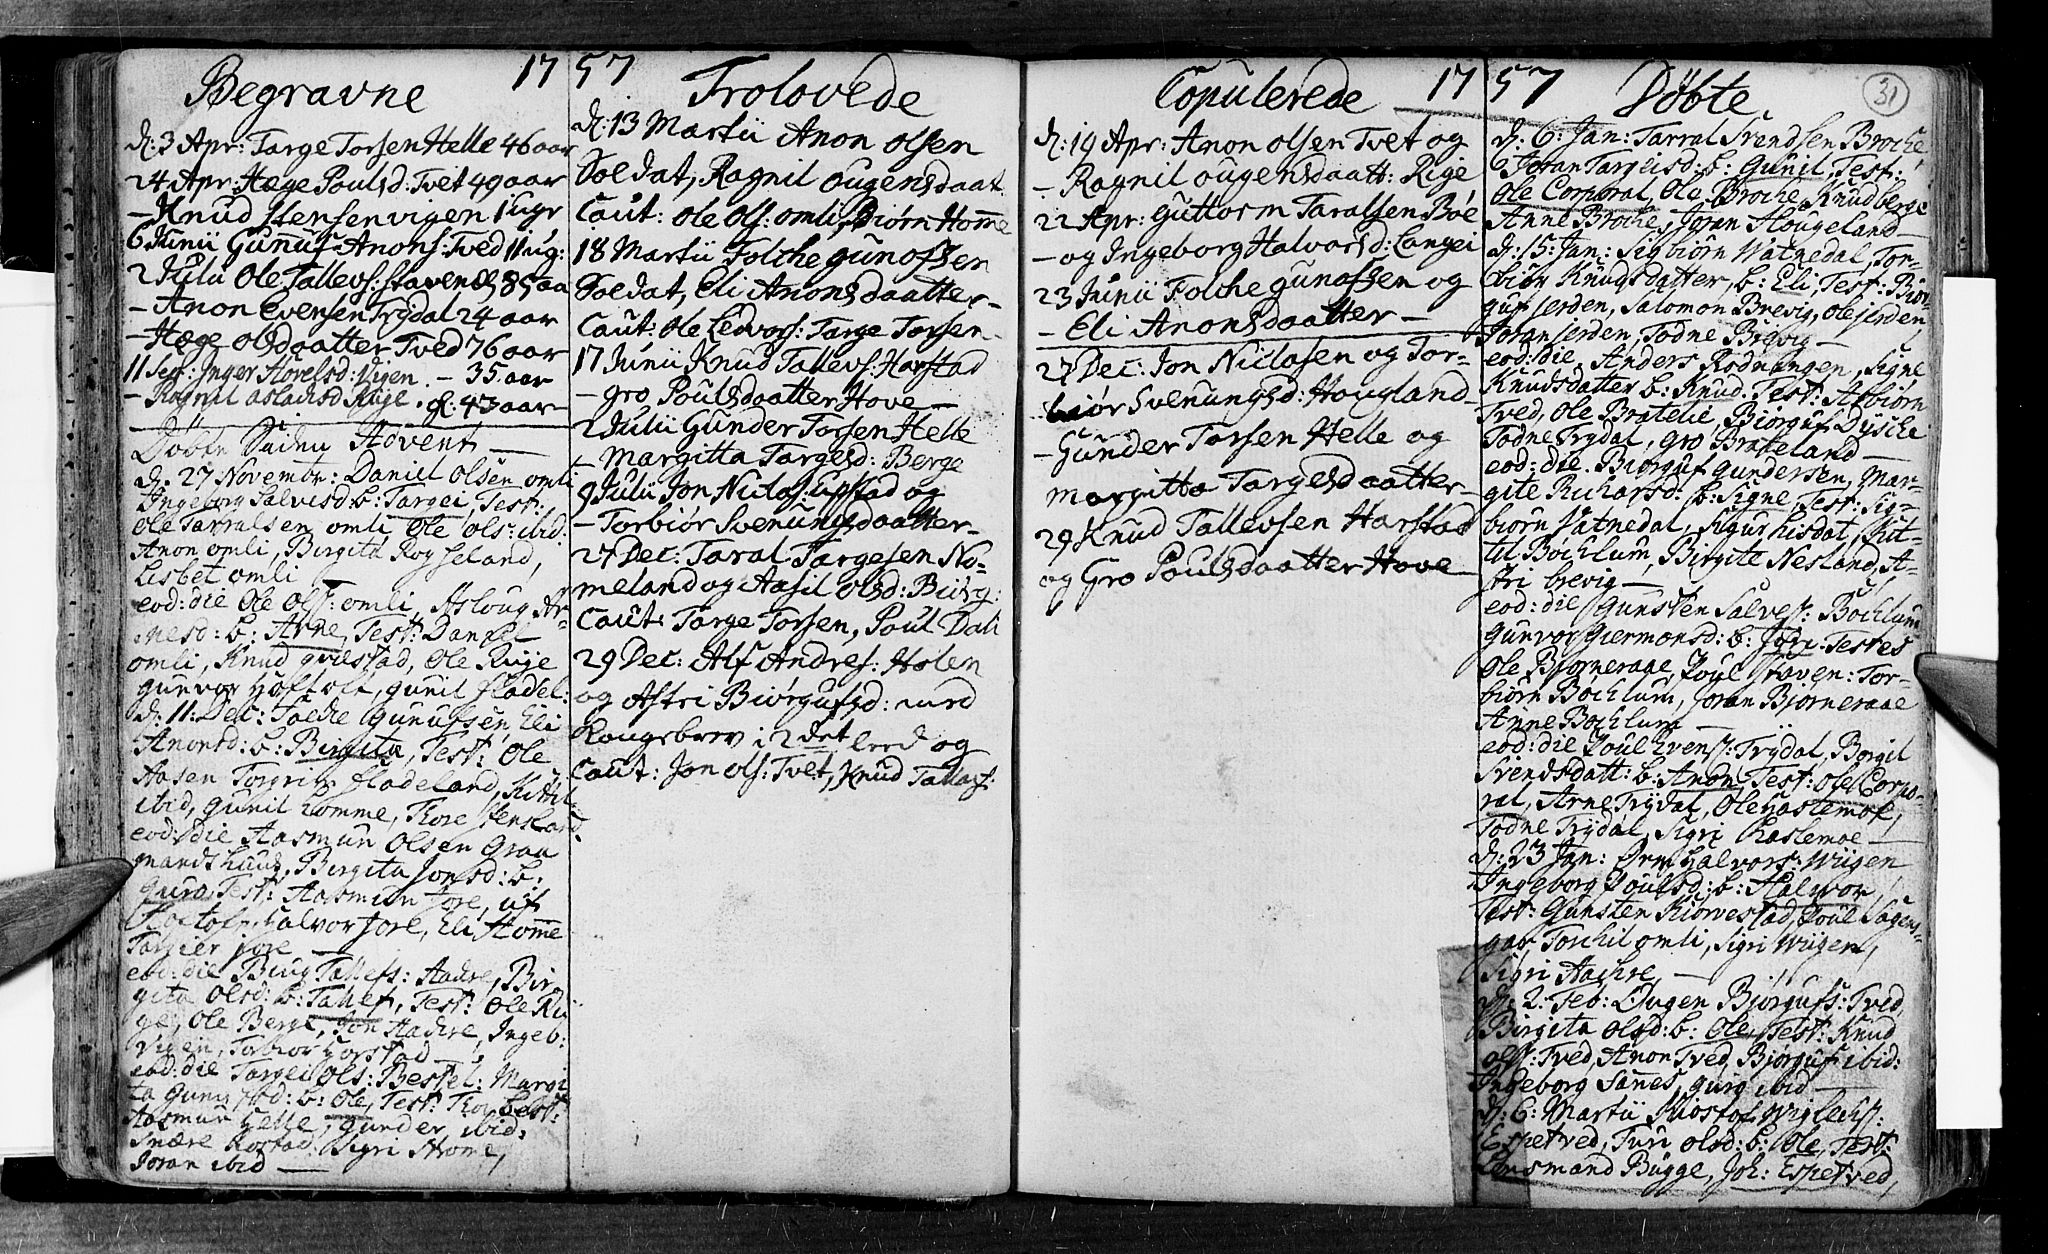 Begravne 17
d: 3 Apr: Targe Torsen Helle 46 aar
24 Apr: Hæge Poulsd: Tvet 49 aar
– Knud Stensen vigen 1 ugr
6 Junii Gunuf Anons: Tved 11 ug:
2 Julii Ole Tallevs: Stavenes 85 aa
– Anon Evensen Trydal 24 aar
– Hæge olsdaatter Tved 76 aar
11 Sep: Inger Storelsd: Vigen – 35 aar
– Ragnil aslachsd Rige gl: 43 aar –
Døbte Siden Advent
d. 27 November: Daniel Olsen omli
Ingeborg Salvesd b: Targei, Test:
Ole Tarralsen omli Ole ols: ibid:
Anon omli, Birgita Røyseland,
Lisbet omli
eod: die Ole Ols: omli, Asloug Ar-
nesd: b: Arne, Test: Daniel
omli, Knud qvestad, Ole Rige
gunvor Hoftoft, gunil fladel:
d: 11: Dec: Folche Gunufsen, Eli
Anonsd: b: Birgita, Test: Ole
Aasen Torgrij fladeland, Kittil
ibid, gunil Homme, Thore Stensland
eod: die Aasmun Olsen Graa
mandshuus, Birgita Jonsd: b:
guro, Test: Aasmun fore,
Hoftoft, Halvor fore, Eli Homme
Targier fore –
eod: die Biug Tallefs: Aachre, Bir
gita Olsd: b: Tallef, Test: Ole Ri
ge, Ole Berge, Jon Aachre, Ingeb:
Vigen, Torbior Horstad –
eod: die Targei Ols: Bestel: Margi
ta Gunufsd: b: Ole, Test: Thor best:
Aasmun Helle, gunder ibid:
Snære Rostad, Sigri Home,
Joran ibid –
57 Trolovede
d: 13 Martii Anon olsen
Soldat, Ragnil ougensdaat:
Caut: Ole Ols: omli, Biørn Home
18 Martii Folche gunofssen
Soldat, Eli Anonsdaatter –
Caut: Ole Ledvors: Targe Torsen –
17 Junii Knud Tallevs: Harstad
– gro Poulsdaatter Hove –
2 Julii Gunder Torsen Helle
– Margitta Targesd: Berge
9 Julii Jon Niclos: upstad og
– Torbiør Svenungsdaatter –
27 Dec: Taral Targesen No-
meland og Aasil olsd: Biørg:
Caut: Targe Torsen, Poul Dali
29 Dec: Alf Andres: Holen
og Astri Biørgufsd: med
Kongebrev i 2det leed og
Caut: Jon ols: Tvet, Knud Tallefs:
Copulerede 17
d: 19 Apr: Anon olsen Tvet og
– Ragnil ougensdaatt: Rige
22 Apr: guttorm Taralsen Bøe
– og Ingeborg Halvorsd: Langei
23 Junii Folche gunofssen og
– Eli Anonsdaatter –
27 Dec: Jon Niclosen og Tor-
biør Svenungsd: Hougland –
– Gunder Torsen Helle og
margitta Targesdaatter –
29 Knud Tallevsen Harstad
og Gro Poulsdaatter Hove –
57 Døbte 31
d: 6: Jan: Tarral Svendsen Broche
& Joran Targeisd: b: Gunil, Test:
Ole Corporal, Ole Broche, Knudberge
Anne Broche, Joran Hougeland –
d: 15: Jan: Sigbiørn Watnedal, Tor-
biør Knudsdatter, b: Eli, Test: Biør-
guf jerden, Salomon Brevig, Ole jerden
Joran jerden, Todne Brevig –
eod: die, Anders Rodningen, Signe
Knudsdatter b: Knud. Test: Asbiørn
Tved, Ole Bratelie, Biørguf Dysche
Todne Trydal, gro Brateland –
eod: die. Biorguf gundersen, Mar-
gite Richarsd: b: Signe, Test: Sig-
biørn Vatnedal, Sigur hisdat, Kit-
til Bochlum, Birgite Nesland, A-
stri brevig –
eod: die Gunsten Salves: Bochlum
gunvor giermonsd: b: Jori. Testes
Ole Biorneraae, Poul staven: Tor-
biørn Bochlum, Joran Bjorneraae
Anne Bochlum –
eod: die Poul Evens: Trydal, Borgil
Svendsdatt: b: Anon, Test: Ole Corpo-
ral, Arne Trydal, Ole Haslemoe,
Todne Trydal, Sigri Haslemoe –
d: 23 Jan: Orm Halvors: Wiigen
Ingeborg Poulsd: b: Halvor,
Test: Gunsten Kiørvestad, Poul Sagens-
gar, Torchil omli, Sigri Wiigen,
Sigri Aachre –
d: 2: Feb: Ougen Biørgufs: Tved,
Birgita olsd: b: Ole, Test: Knud
ols: Tved, Anon Tved, Biørguf ibid:
Ingeborg Sannes, guro ibid –
d: 6: Martii Kristof Wiglechs:
Espetved, Turi olsd: b: Ole, Test:
Lensmand Bugge, Joh: Espetved,